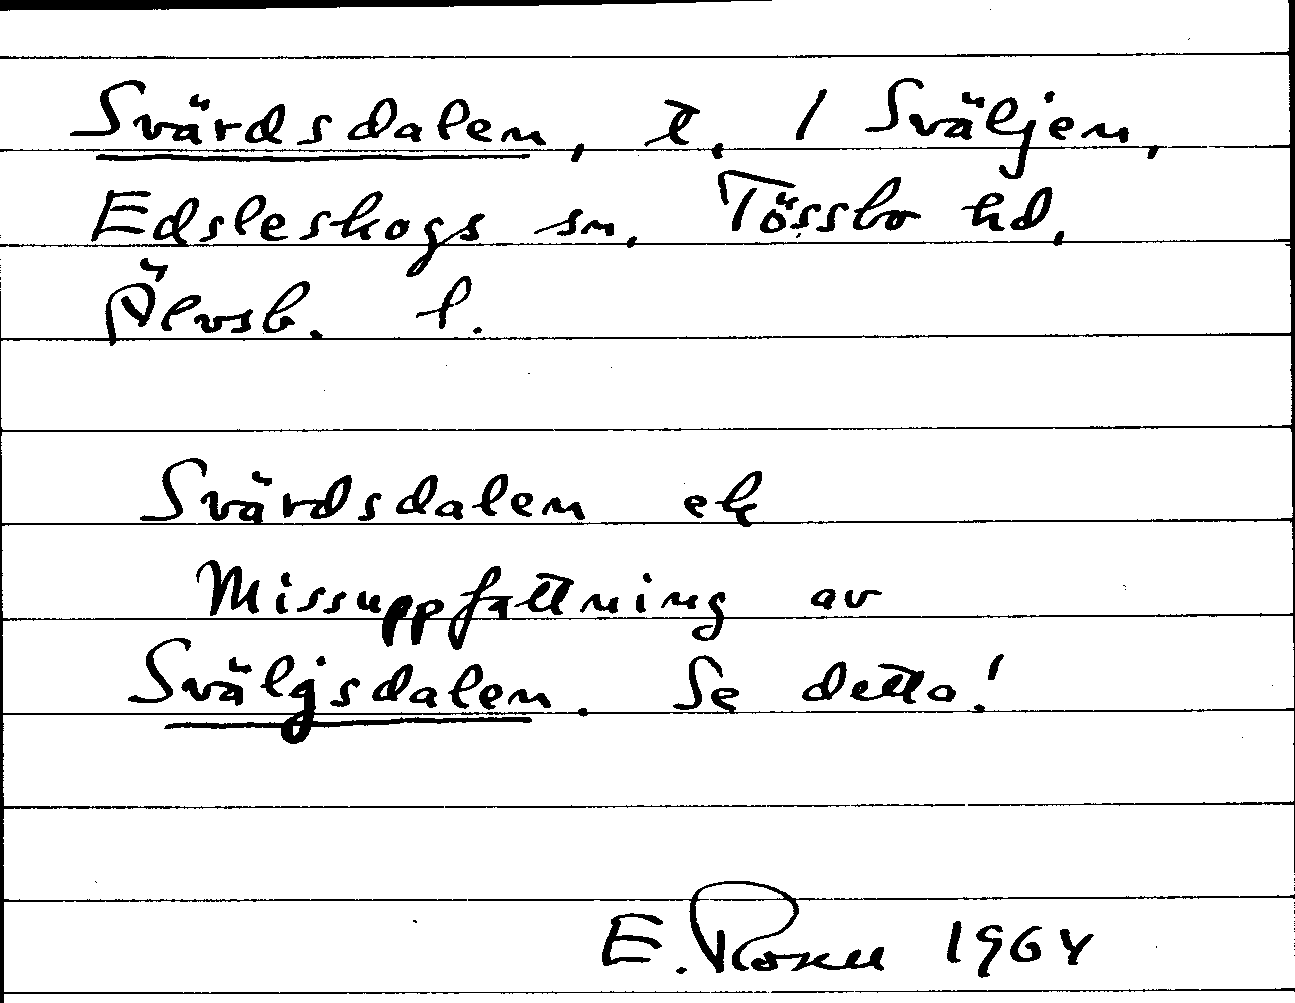 Svärdsdalen, t. / Sväljen,
Edsleskogs sn. Tössbo hd.
Älvsb. l.
Svärdsdalen ek
Missuppfattning av
Sväljsdalen. Se detta!
E. 1964